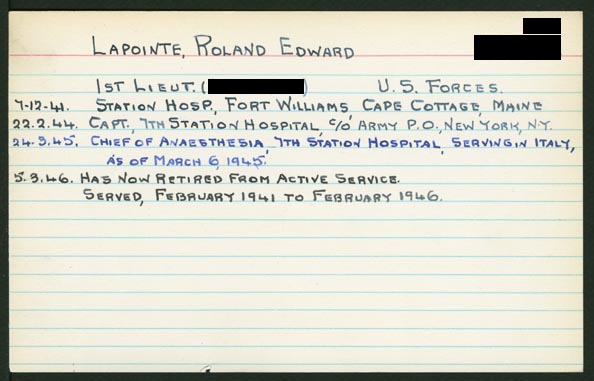 LAPOINTE, ROLAND EDWARD
1ST LIEUT. ( ) U.S. FORCES.
7-12-41. STATION HOSP., FORT WILLIAMS, CAPE COTTAGE, MAINE
22.2.44. CAPT., 7TH STATION HOSPITAL, C/O ARMY P.O., NEW YORK, N.Y.
24.3.45. CHIEF OF ANAESTHESIA, 7TH STATION HOSPITAL, SERVING IN ITALY,
AS OF MARCH 6, 1945.
5.3.46. HAS NOW RETIRED FROM ACTIVE SERVICE.
SERVED, FEBRUARY 1941 TO FEBRUARY 1946.